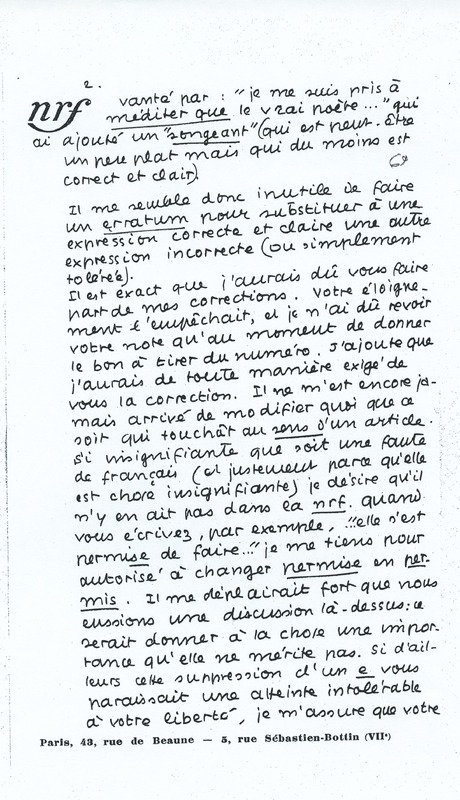 2.
nrf
vanté par : "je me suis pris à
méditer que le vrai poète..." qui
ai ajouté un "songeant" (qui est peut-être
un peu plat mais qui du moins est
correct et clair).
Il me semble donc inutile de faire
un erratum pour substituer à une
expression correcte et claire une autre
expression incorrecte (ou simplement
tolérée).
Il est exact que j'aurais dû vous faire
part de mes corrections. Votre éloigne-
ment l'empêchait, et je n'ai dû revoir
votre note qu'au moment de donner
le bon à tirer du numéro. J'ajoute que
j'aurais de toute manière exigé de
vous la correction. Il ne m'est encore ja-
mais arrivé de modifier quoi que ce
soit qui touchât au sens d'un article.
Si insignifiante que soit une faute
de français (et justement parce qu'elle
est chose insignifiante) je désire qu'il
n'y en ait pas dans la nrf. quand
vous écrivez, par exemple, "elle s'est
permise de faire..." je me tiens pour
autorisé à changer permise en per-
mis. Il me déplairait fort que nous
eussions une discussion là-dessus: ce
serait donner à la chose une impor-
tance qu'elle ne mérite pas. Si d'ail-
leurs cette suppression d'un e vous
paraissait une atteinte intolérable
à votre liberté, je m'assure que votre
Paris, 43, rue de Beaune — 5, rue Sébastien-Bottin (VIIe)